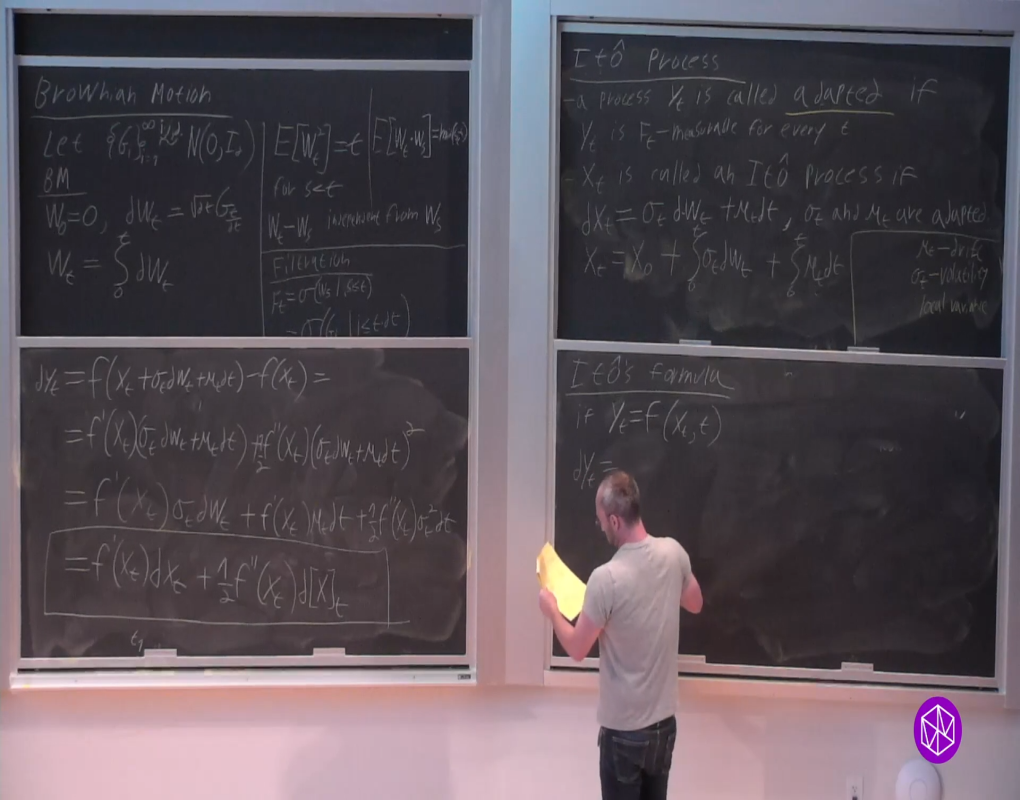 Brownian Motion
Let {G_i}_{i=1}^∞ iid N(0, I_d)
BM
W_0=0, dW_t = √dt G_{t/dt}
W_t = ∫_0^t dW_t
E[W_t^2]=t
E[W_t·W_s]=
for s<t
W_t-W_s independent from W_s
Filtration
F_t=σ(W_s | s≤t)
=σ(G_i | i≤t/dt)
dY_t = f(X_t+σ_t dW_t+μ_t dt)-f(X_t)=
=f'(X_t)(σ_t dW_t+μ_t dt)+½f''(X_t)(σ_t dW_t+μ_t dt)^2
=f'(X_t)σ_t dW_t+f'(X_t)μ_t dt+½f''(X_t)σ_t^2 dt
=f'(X_t)dX_t+½f''(X_t)d[X]_t
Itô Process
-a process Y_t is called adapted if
Y_t is F_t-measurable for every t
- X_t is called an Itô Process if
dX_t=σ_t dW_t+μ_t dt, σ_t and μ_t are adapted
X_t=X_0+∫_0^t σ_t dW_t+∫_0^t μ_t dt
μ_t-drift
σ_t-volatility
local variance
Itô's formula
if Y_t=f(X_t,t)
dY_t=